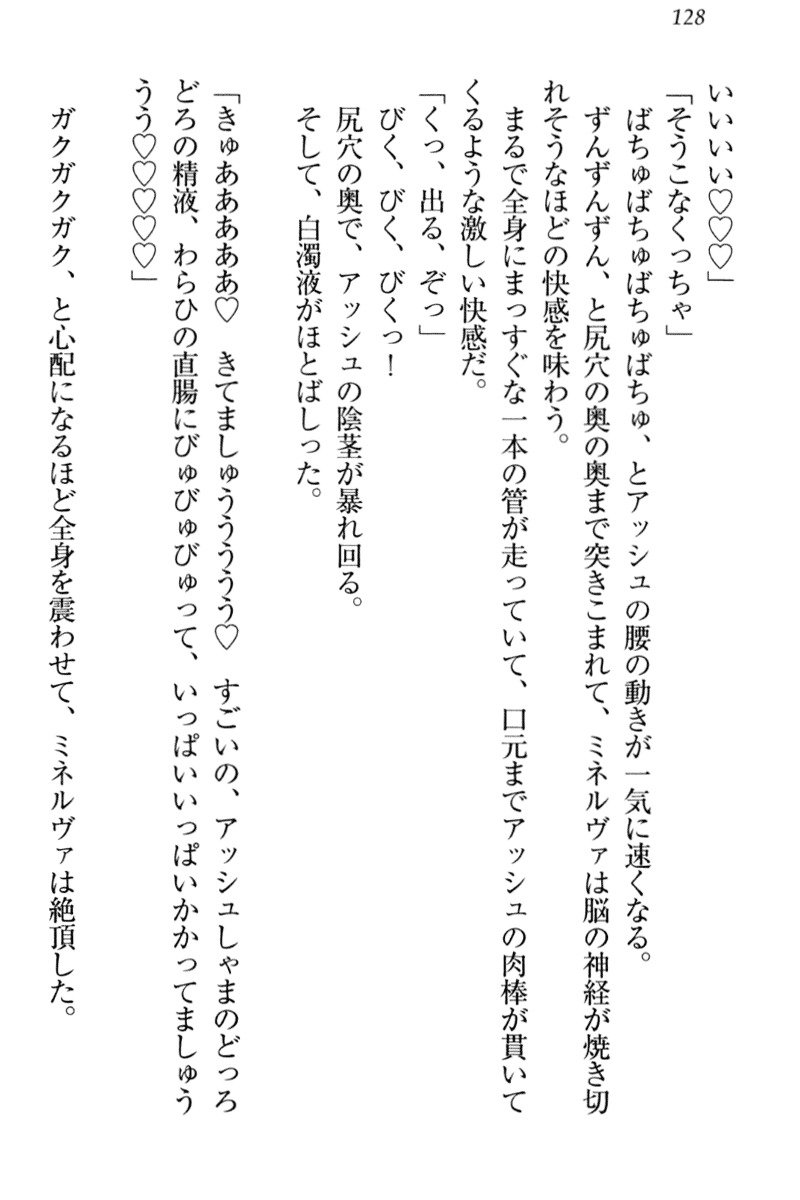 128
いいいい♡♡♡」
「そうこなくっちゃ」
　ばちゅばちゅばちゅばちゅ、とアッシュの腰の動きが一気に速くなる。
　ずんずんずん、と尻穴の奥の奥まで突きこまれて、ミネルヴァは脳の神経が焼き切
れそうなほどの快感を味わう。
　まるで全身にまっすぐな一本の管が走っていて、口元までアッシュの肉棒が貫いて
くるような激しい快感だ。
「くっ、出る、ぞっ」
　びく、びく、びくっ！
　尻穴の奥で、アッシュの陰茎が暴れ回る。
　そして、白濁液がほとばしった。
「きゅあああああ♡　きてましゅうううう♡　すごいの、アッシュしゃまのどっろ
どろの精液、わらひの直腸にびゅびゅびゅって、いっぱいいっぱいかかってましゅう
うう♡♡♡♡♡」
　ガクガクガク、と心配になるほど全身を震わせて、ミネルヴァは絶頂した。